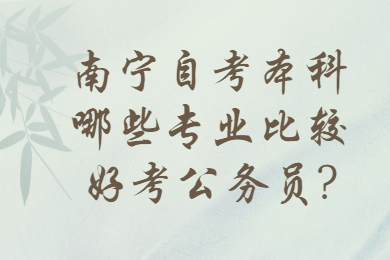 南宁自考本科
哪些专业比较
好考公务员?